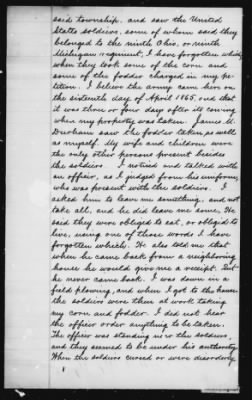 said township, and saw the United
States soldiers, some of whom said they
belonged to the ninth Ohio, or ninth
Michigan regiment, I have forgotten which,
when they took some of the corn and
some of the fodder charged in my pe-
tition. I believe the army came here on
the sixteenth day of April 1865, and that
it was three or four days after its coming
when my property was taken. James M.
Durham saw the fodder taken, as well
as myself. My wife and children were
the only other persons present besides
the soldiers. I noticed and talked with
an officer, as I judged from his uniform,
who was present with the soldiers. I
asked him to leave me something, and not
take all, and he did leave me some. He
said they were obliged to eat, or obliged to
live, using one of those words I have
forgotten which. He also told me that
when he came back from a neighboring
house he would give me a receipt. But
he never came back. I was down in a
field plowing, and when I got to the house
the soldiers were there at work taking
my corn and fodder. I did not hear
the officer order anything to be taken.
The officer was standing near the soldiers,
and they seemed to be under his authority.
When the soldiers cursed or were disorderly